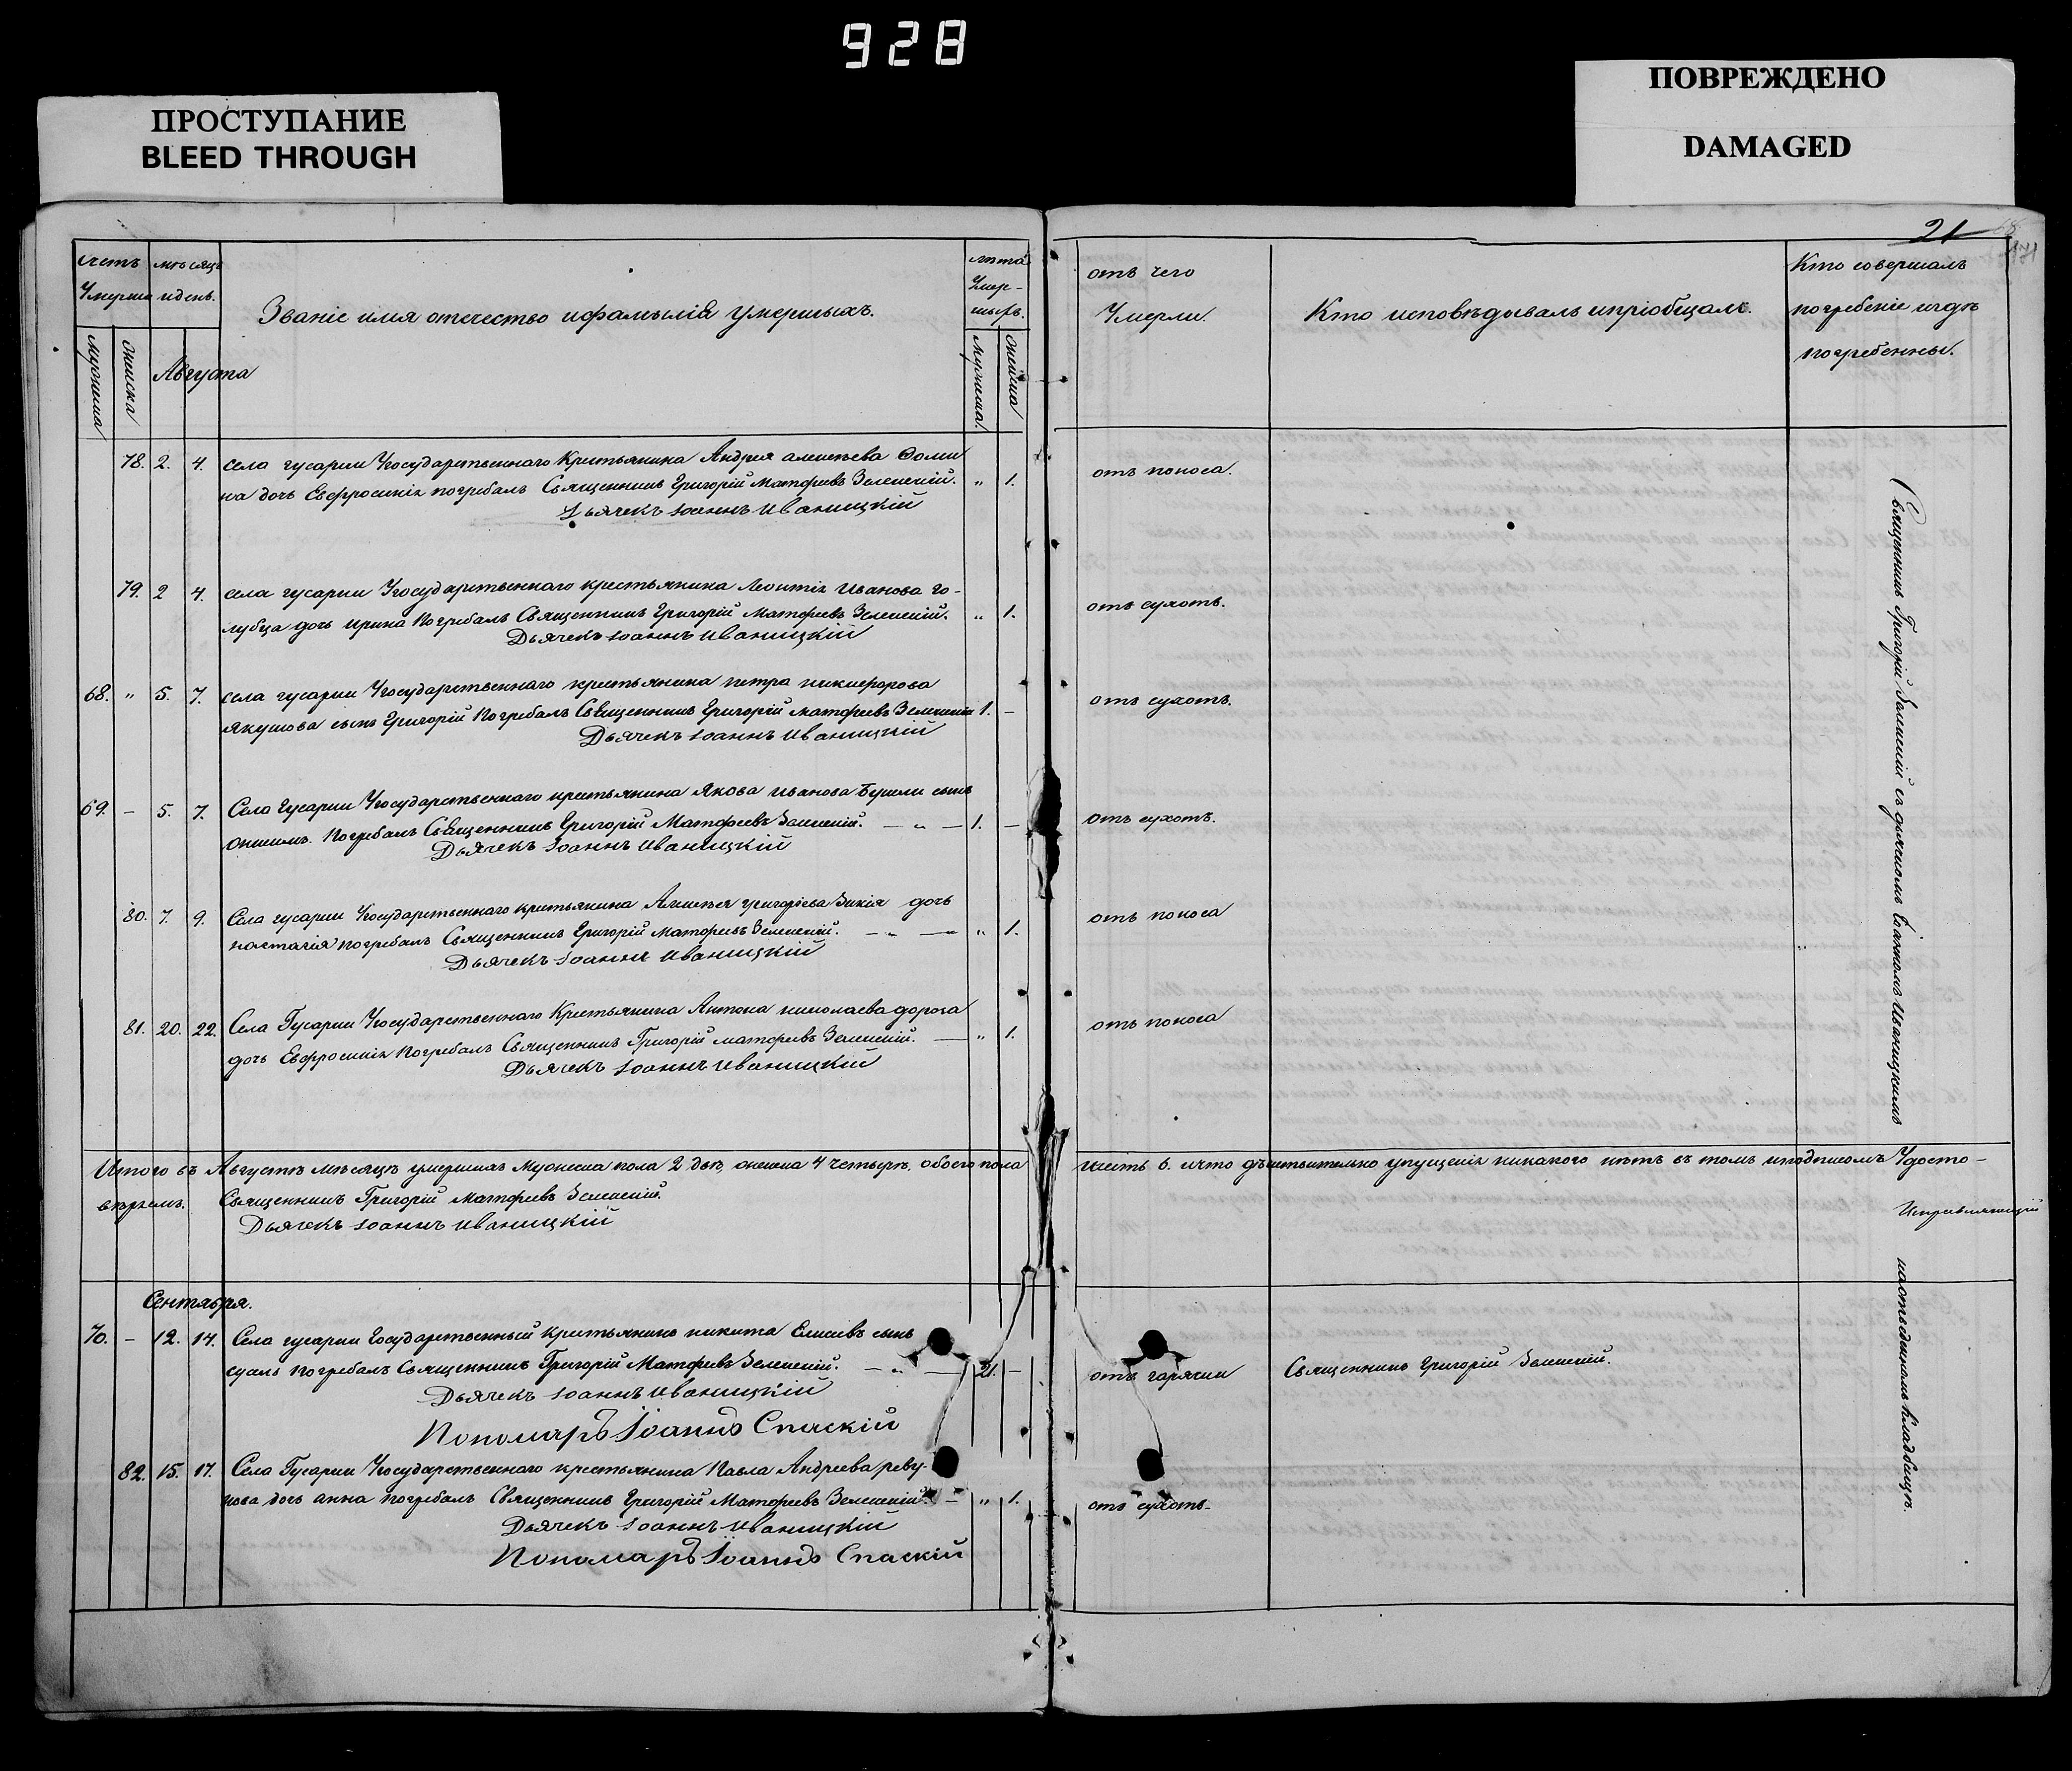 928
ПРОСТУПАНИЕ
BLEED THROUGH
ПОВРЕЖДЕНО
DAMAGED
21
171
счетъ
Умерши
мѣсяцъ
и день.
Званіе имя отечество и фамылія умершыхъ.
лѣта
Умер-
шыхъ.
мужеска
женска
Августа
мужеска.
женска
отъ чего
Умерли.
Кто исповѣдывалъ и пріобщалъ.
Кто совершалъ
погребеніе и гдѣ
погребенны.
78. 2. 4. села гусарки Угосударственнаго Крестьянина Андрея алексѣева Фоми
на дочь Евфросинія погребалъ Священникъ Григорій Матфеевъ Зеленскій. „ 1. отъ поноса.
Дьячекъ Іоаннъ Иваницкій
79. 2 4. села гусарки Угосударственнаго крестьянина Леонтія Иванова го-
лубца дочь Ирина Погребалъ Священникъ Григорій Матфеевъ Зеленскій. „ 1. отъ сухотъ.
Дьячекъ Іоаннъ Иваницкій
68. „ 5. 7. села гусарки Угосударственнаго крестьянина петра никифорова
якушова сынъ Григорій Погребалъ Священникъ Григорій матфеевъ Зеленскій 1. – отъ сухотъ.
Дьячекъ Іоаннъ Иваницкій
69. – 5. 7. Села Гусарки Угосударственнаго крестьянина Якова иванова сынъ
Погребалъ Священникъ Григорій Матфеевъ Зеленскій. — „ — 1. – отъ сухотъ.
Дьячекъ Іоаннъ Иваницкій
80. 7. 9. Села гусарки Угосударственнаго крестьянина Алексѣя григорієва дочь
настасія погребалъ Священникъ Григорій матфеевъ Зеленскій. — „ — „ 1. отъ поноса
Дьячекъ Іоаннъ Иваницкій
81. 20. 22. Села Гусарки Угосударственнаго Крестьянина Антона николаева дороха
дочь Евфросинія Погребалъ Священникъ Григорій матфеевъ Зеленскій. — „ 1. отъ поноса
Дьячекъ Іоаннъ Иваницкій
Священникъ Григорій Зеленскій съ дьячкомъ Іоанномъ Иваницкимъ
Итого въ Августѣ мѣсяцѣ умершихъ Мужеска пола 2 двѣ, женска 4 четыре, обоего пола шесть 6. и что дѣйствительно упущенія никакого нѣтъ въ томъ и подписомъ Удосто-
вѣряемъ. Священникъ Григорій Матфеевъ Зеленскій.
Исправляющій
Дьячекъ Іоаннъ Иваницкій
Сентября.
70. – 12. 14. Села гусарки Государственный Крестьянинъ никита Елисеевъ сынъ
погребалъ Священникъ Григорій Матфеевъ Зеленскій. — „ — 21. – отъ горячки Священникъ Григорій Зеленскій.
Дьячекъ Іоаннъ Иваницкій
Пономарь Іоаннъ Спаскій
82. 15. 17. Села Гусарки Угосударственнаго крестьянина Павла Андреева реву-
нова дочь анна погребалъ Священникъ Григорій Матфеевъ Зеленскій. – „ 1. отъ сухотъ.
Дьячекъ Іоаннъ Иваницкій
Пономарь Іоаннъ Спаскій
на отведенномъ кладбищѣ.